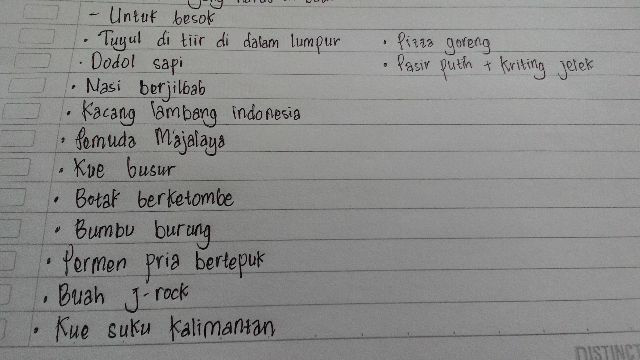 - Untuk besok
• Tuyul di tiir di dalam lumpur
• Dodol sapi
• Nasi berjilbab
• Kacang lambang indonesia
• Pemuda Majalaya
• Kue busur
• Botak berketombe
• Bumbu burung
• Permen pria bertepuk
• Buah J-rock
• Kue suku Kalimantan
• Pizza goreng
• Pasir putih + Kriting jelek
DISTINCT